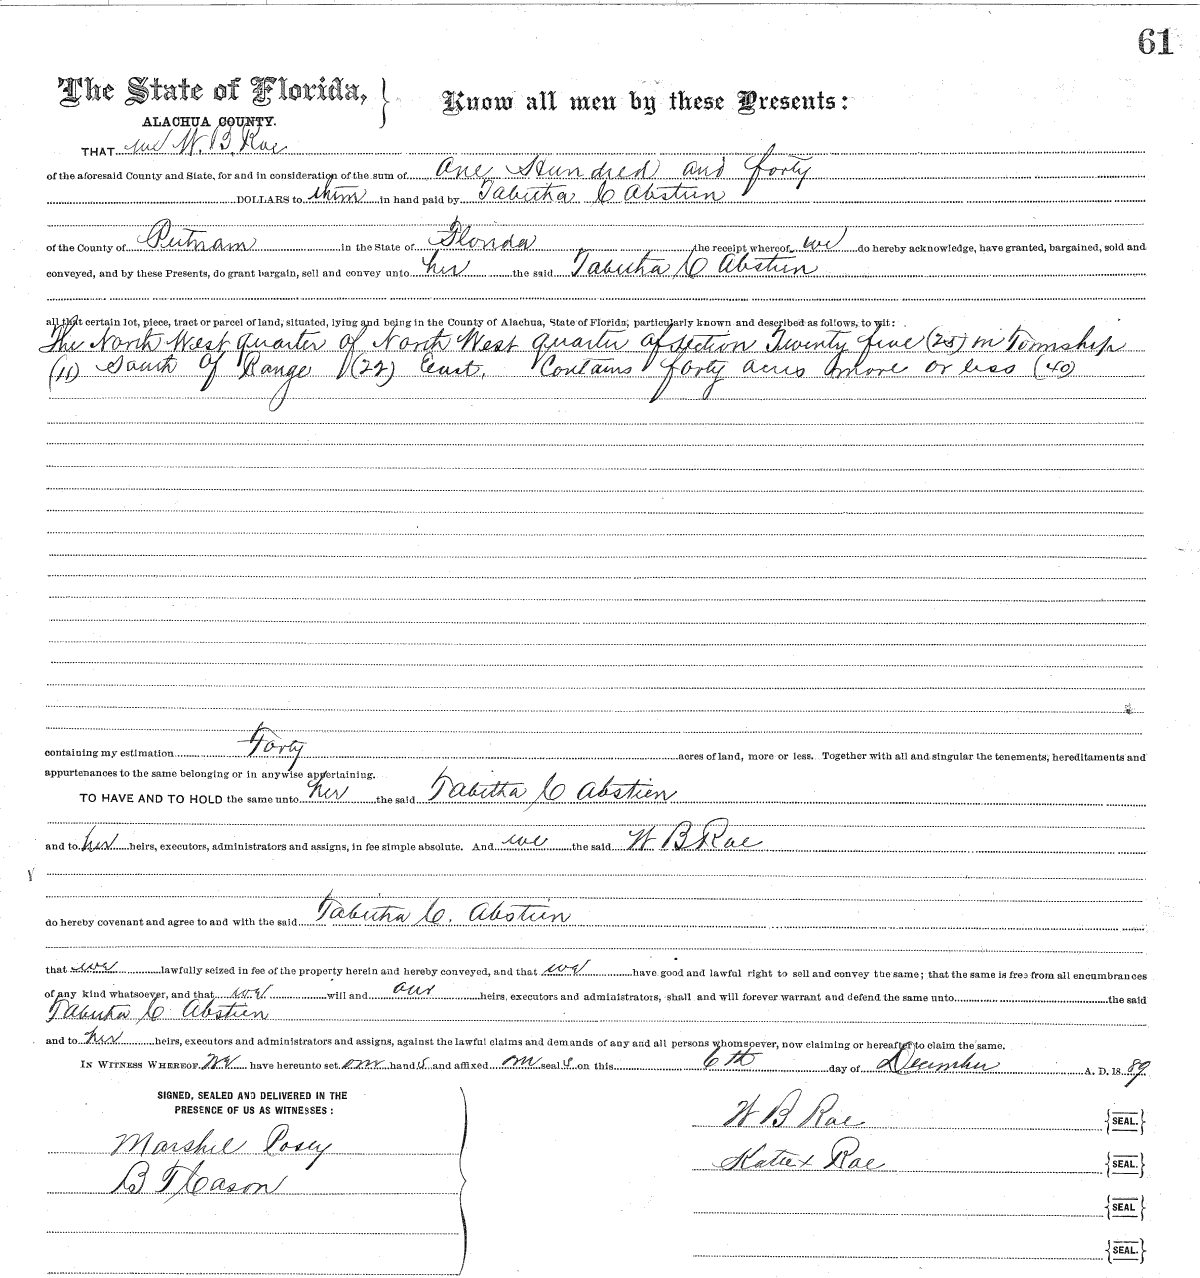 61
The State of Florida, } Know all men by these Presents:
ALACHUA COUNTY.
THAT we W. B. Rae
of the aforesaid County and State, for and in consideration of the sum of One Hundred and forty
DOLLARS to them in hand paid by Tabitha C Abstien
of the County of Putnam in the State of Florida the receipt whereof we do hereby acknowledge, have granted, bargained, sold and
conveyed, and by these Presents, do grant bargain, sell and convey unto her the said Tabitha C Abstien
all that certain lot, piece, tract or parcel of land, situated, lying and being in the County of Alachua, State of Florida, particularly known and described as follows, to wit:
The North West quarter of North West quarter of Section Twenty five (25) in Township
(11) South of Range (22) East. Contains forty acres more or less (40)
containing my estimation Forty acres of land, more or less. Together with all and singular the tenements, hereditaments and
appurtenances to the same belonging or in anywise appertaining.
TO HAVE AND TO HOLD the same unto her the said Tabitha C Abstien
and to her heirs, executors, administrators and assigns, in fee simple absolute. And we the said W B Rae
do hereby covenant and agree to and with the said Tabitha C. Abstien
that we lawfully seized in fee of the property herein and hereby conveyed, and that we have good and lawful right to sell and convey the same; that the same is free from all encumbrances
of any kind whatsoever, and that we will and our heirs, executors and administrators, shall and will forever warrant and defend the same unto the said
Tabitha C Abstien
and to her heirs, executors and administrators and assigns, against the lawful claims and demands of any and all persons whomsoever, now claiming or hereafter to claim the same.
IN WITNESS WHEREOF We have hereunto set our hands and affixed our seals on this 6th day of December A. D. 1889
SIGNED, SEALED AND DELIVERED IN THE
PRESENCE OF US AS WITNESSES:
Marshel Posey
B T Cason
W B Rae {SEAL.}
Katie x Rae {SEAL.}
{SEAL}
{SEAL.}